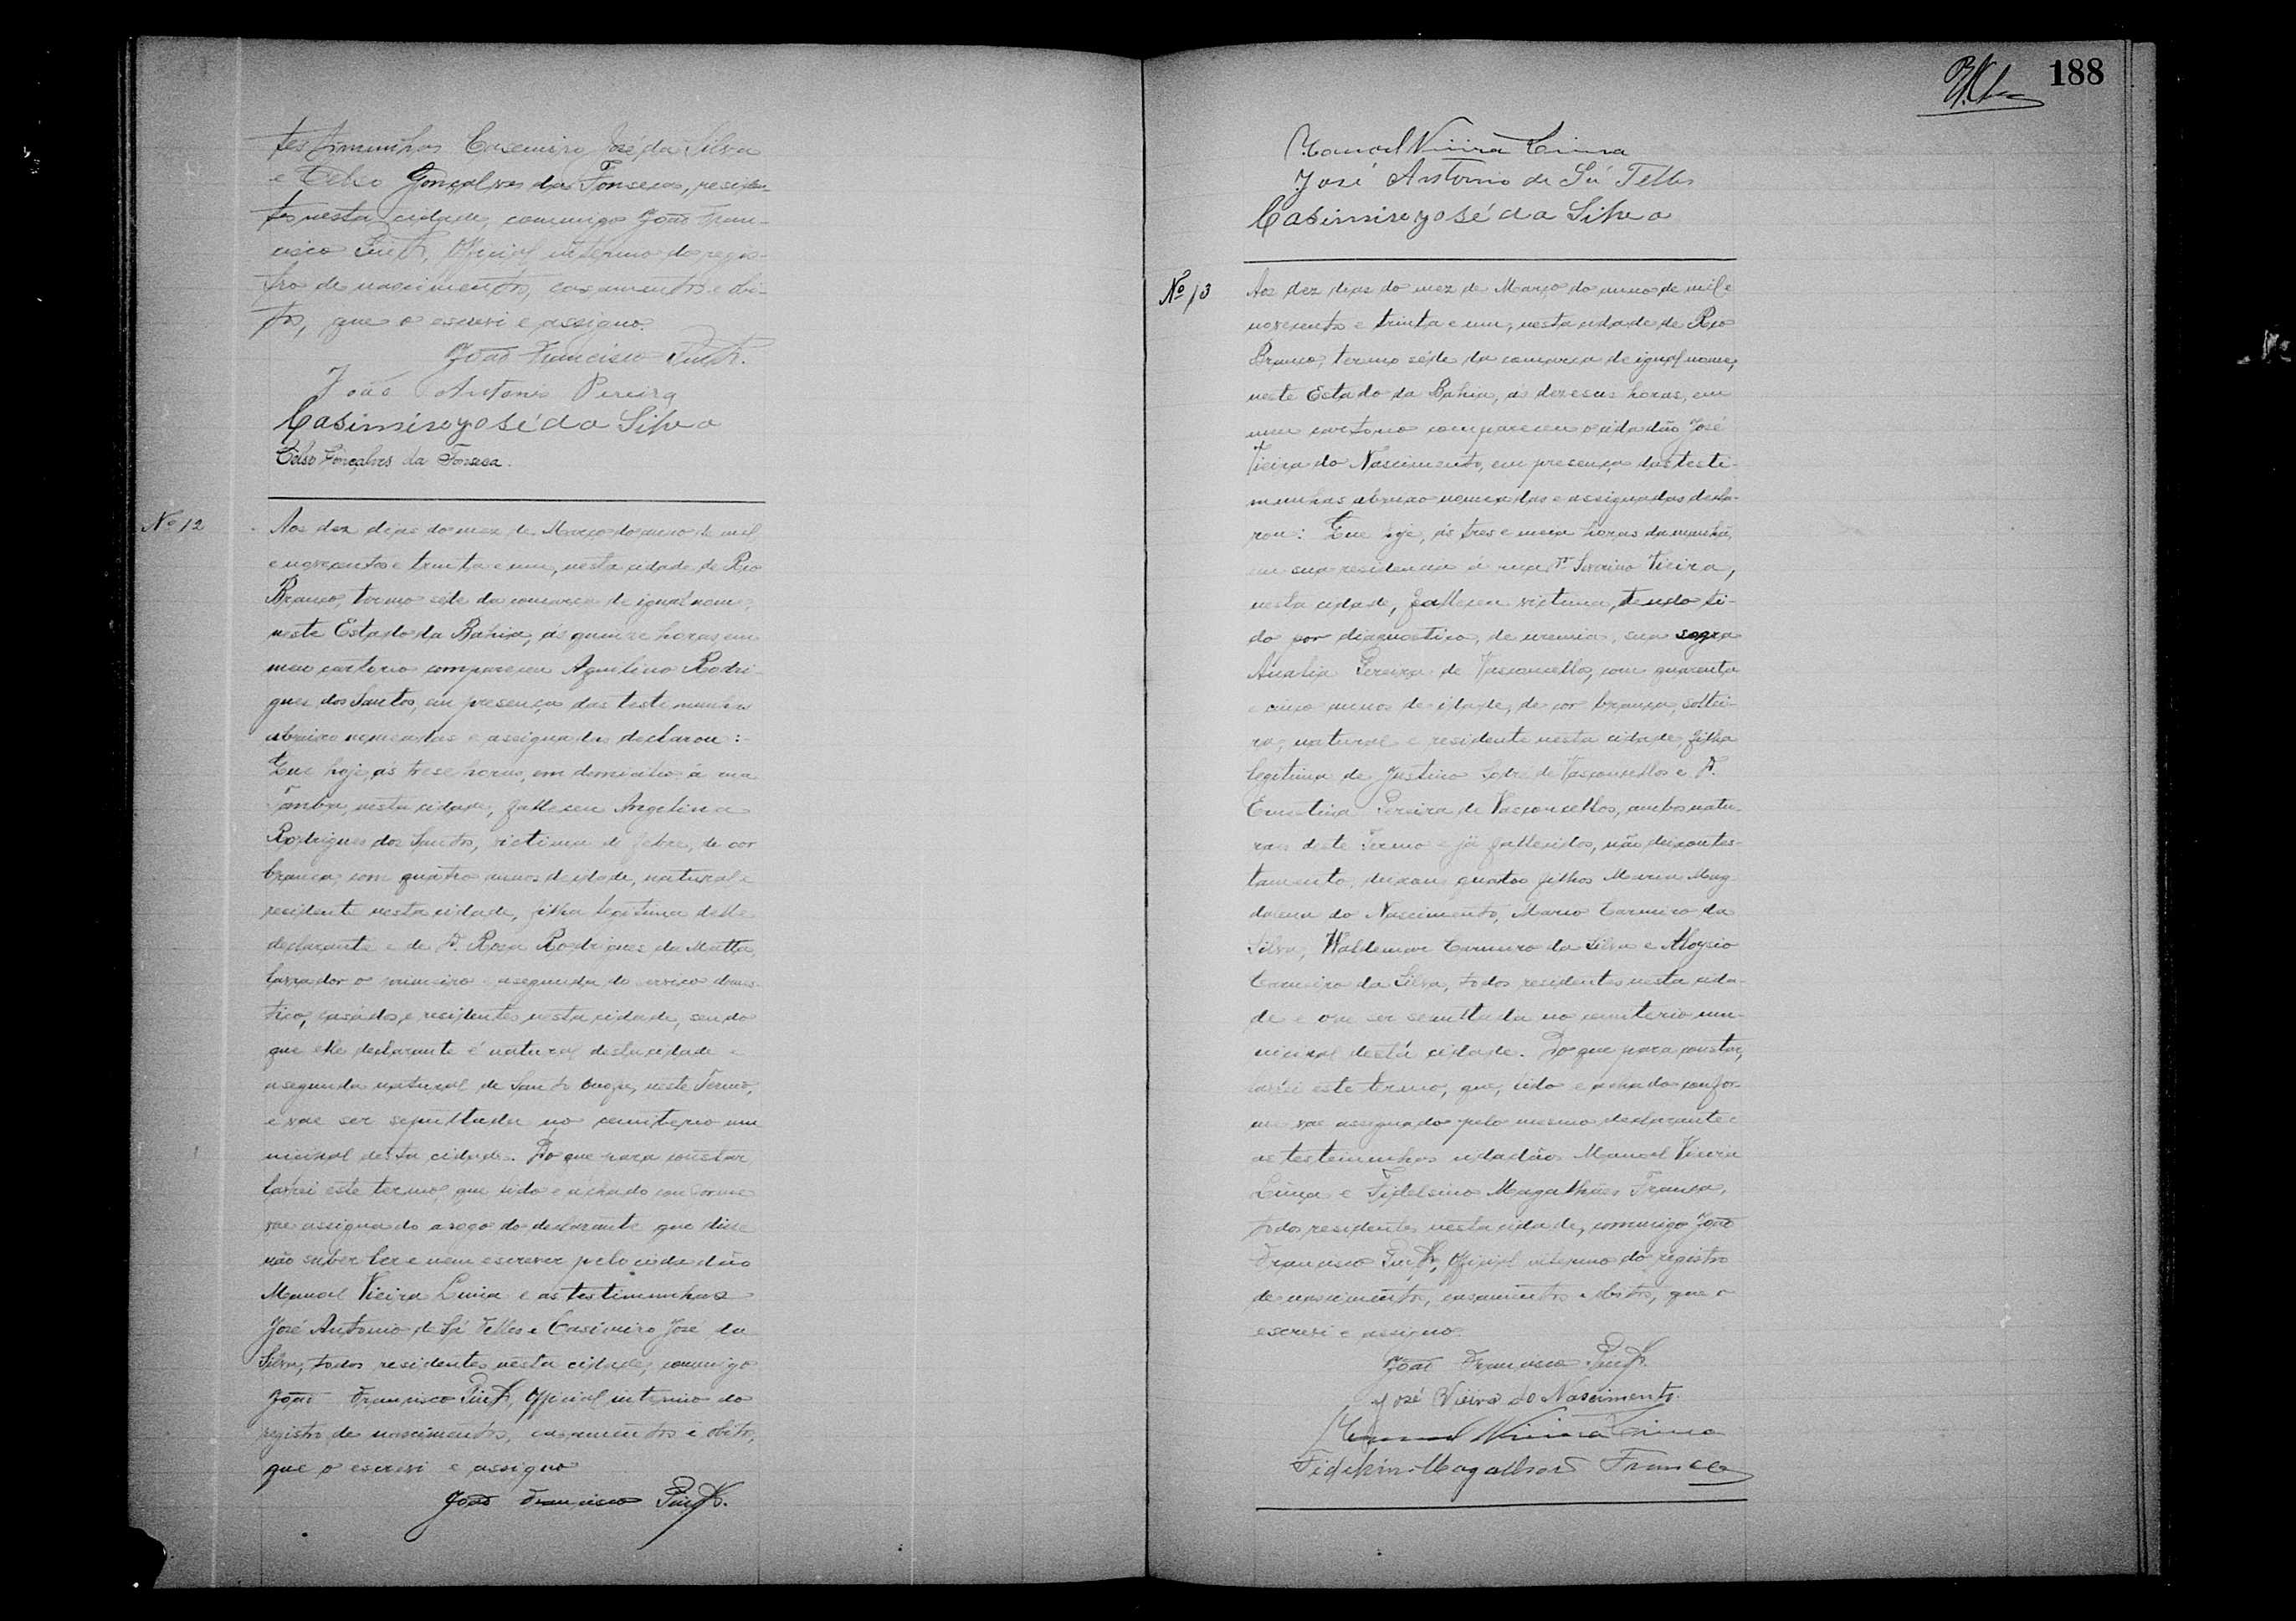 testimunhas Casemiro José da Silva
e Celso Gonçalves da Fonseca, residen-
tes nesta cidade, commigo João Fran-
cisco, Official interino do regis-
tro de nascimentos, casamentos e obi-
tos, que o escrevi e assigno.
João Francisco
João Antonio Pereira
Casimiro José da Silva
Celso Gonçalves da Fonseca.
Nº 12
Aos dez dias do mez de Março do anno de mil
e novecentos e trinta e um, nesta cidade de Rio
Branco, termo séde da comarca de igual nome,
neste Estado da Bahia, ás quinze horas em
meu cartorio compareceu Aquilino Rodri-
gues dos Santos, em presença das testimunhas
abaixo nomeadas e assignadas declarou:
Que hoje, ás treze horas, em domicilio á rua
nesta cidade, falleceu Angelina
Rodrigues dos Santos, victima de febre, de cor
branca, com quatro annos de idade, natural e
residente nesta cidade, filha legitima delle
declarante e de Dª Rosa Rodrigues da Matta,
lavrador o primeiro e a segunda do serviço domes-
tico, casados e residentes nesta cidade, sendo
que elle declarante é natural desta cidade e
a segunda natural de Santo Onofre, neste Termo,
e vae ser sepultada no cemiterio mu
nicipal desta cidade. Do que para constar
lavrei este termo, que lido e achado conforme
vae assignado a rogo do declarante que disse
não saber ler e nem escrever pelo cidadão
Manoel Vieira e as testimunhas
José Antonio de Sá Telles e Casimiro José da
Silva, todos residentes nesta cidade, commigo
João Francisco, Official interino do
registro de nascimentos, casamentos e obitos,
que o escrevi e assigno
João Francisco
188
Manoel Vieira
José Antonio de Sá Telles
Casimiro José da Silva
Nº 13
Aos dez dias do mez de Março do anno de mil e
novecentos e trinta e um, nesta cidade de Rio
Branco, termo séde da comarca de igual nome,
neste Estado da Bahia, ás dezeseis horas, em
meu cartorio compareceu o cidadão José
Vieira do Nascimento, em presença das testi-
munhas abaixo nomeadas e assignadas decla-
rou: Que hoje, ás tres e meia horas da manhã,
em sua residencia á rua Dr. Severino Vieira,
nesta cidade, falleceu victima, tendo ti-
do por diagnostico, de uremia, sua sogra
Analia Pereira de Vasconcellos, com quarenta
e cinco annos de idade, de cor branca, soltei-
ra, natural e residente nesta cidade, filha
legitima de Justino de Vasconcellos e Dª
Ernestina Pereira de Vasconcellos, ambos natu-
raes deste Termo e já fallecidos, não deixou tes-
tamento, deixou quatro filhos Maria Mag-
dalena do Nascimento, Mario Carneiro da
Silva, Waldemar Carneiro da Silva e Aloysio
Carneiro da Silva, todos residentes nesta cida-
de e vae ser sepultada no cemiterio mu-
nicipal desta cidade. Do que para constar,
lavrei este termo, que, lido e achado confor-
me vae assignado pelo mesmo declarante e
as testemunhas cidadãos Manoel Vieira
e Fidelcino Magalhães França,
todos residentes nesta cidade, commigo João
Francisco, Official interino do registro
de nascimentos, casamentos e obitos, que o
escrevi e assigno.
João Francisco
José Vieira do Nascimento.
Manoel Vieira
Fidelcino Magalhães França